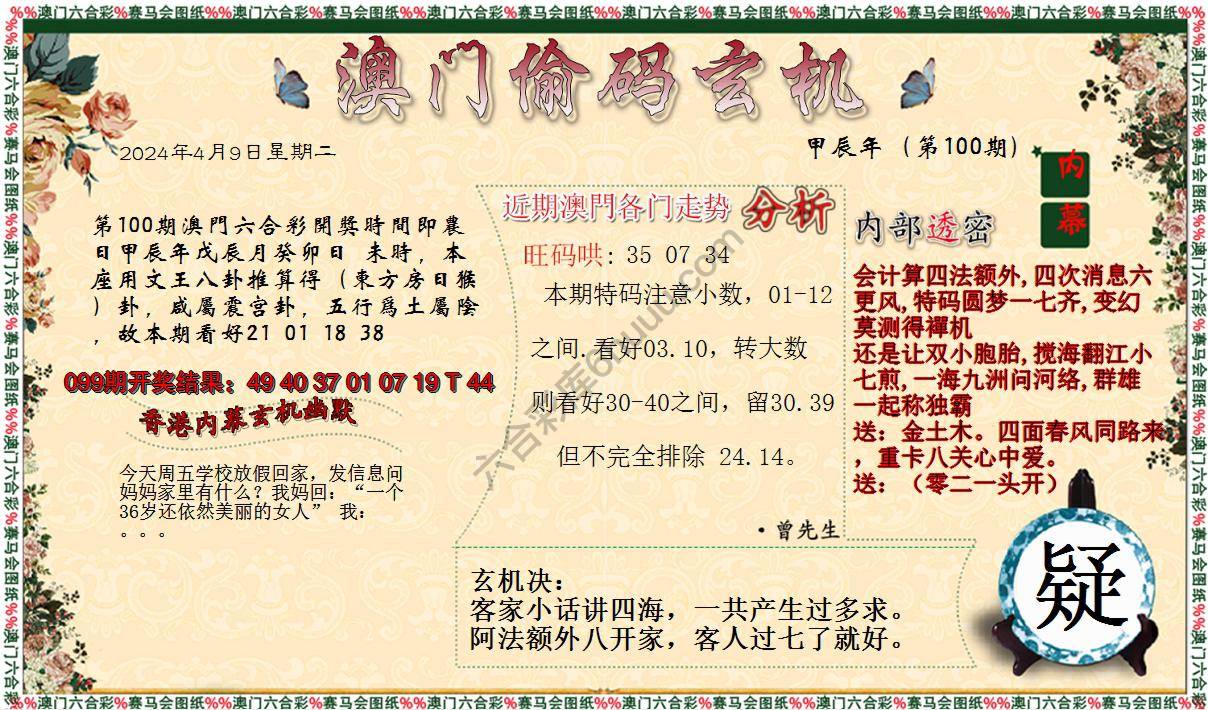 %%澳门六合彩%赛马会图纸%%澳门六合彩%赛马会图纸%%澳门六合彩%赛马会图纸%%澳门六合彩%赛马会图纸%%澳门六合彩%赛马会图纸%%澳门六合彩%赛马会图纸%%
澳门偷码玄机
2024年4月9日星期二
甲辰年（第100期）
内幕
第100期澳門六合彩開獎時間即農
日甲辰年戊辰月癸卯日 未時，本
座用文王八卦推算得（東方房日猴
）卦，咸屬震宫卦，五行爲土屬陰
，故本期看好21 01 18 38
099期开奖结果：49 40 37 01 07 19 T 44
香港内幕玄机幽默
今天周五学校放假回家，发信息问
妈妈家里有什么？我妈回：“一个
36岁还依然美丽的女人” 我：
。。。
近期澳門各门走势 分析
旺码哄: 35 07 34
本期特码注意小数，01-12
之间.看好03.10，转大数
则看好30-40之间，留30.39
但不完全排除 24.14。
·曾先生
内部透密
会计算四法额外,四次消息六
更风,特码圆梦一七齐,变幻
莫测得禪机
还是让双小胞胎,搅海翻江小
七煎,一海九洲问河络,群雄
一起称独霸
送：金土木。四面春风同路来
，重卡八关心中爱。
送：（零二一头开）
玄机决：
客家小话讲四海，一共产生过多求。
阿法额外八开家，客人过七了就好。
疑
%%澳门六合彩%赛马会图纸%%澳门六合彩%赛马会图纸%%澳门六合彩%赛马会图纸%%澳门六合彩%赛马会图纸%%澳门六合彩%赛马会图纸%%澳门六合彩%赛马会图纸%%